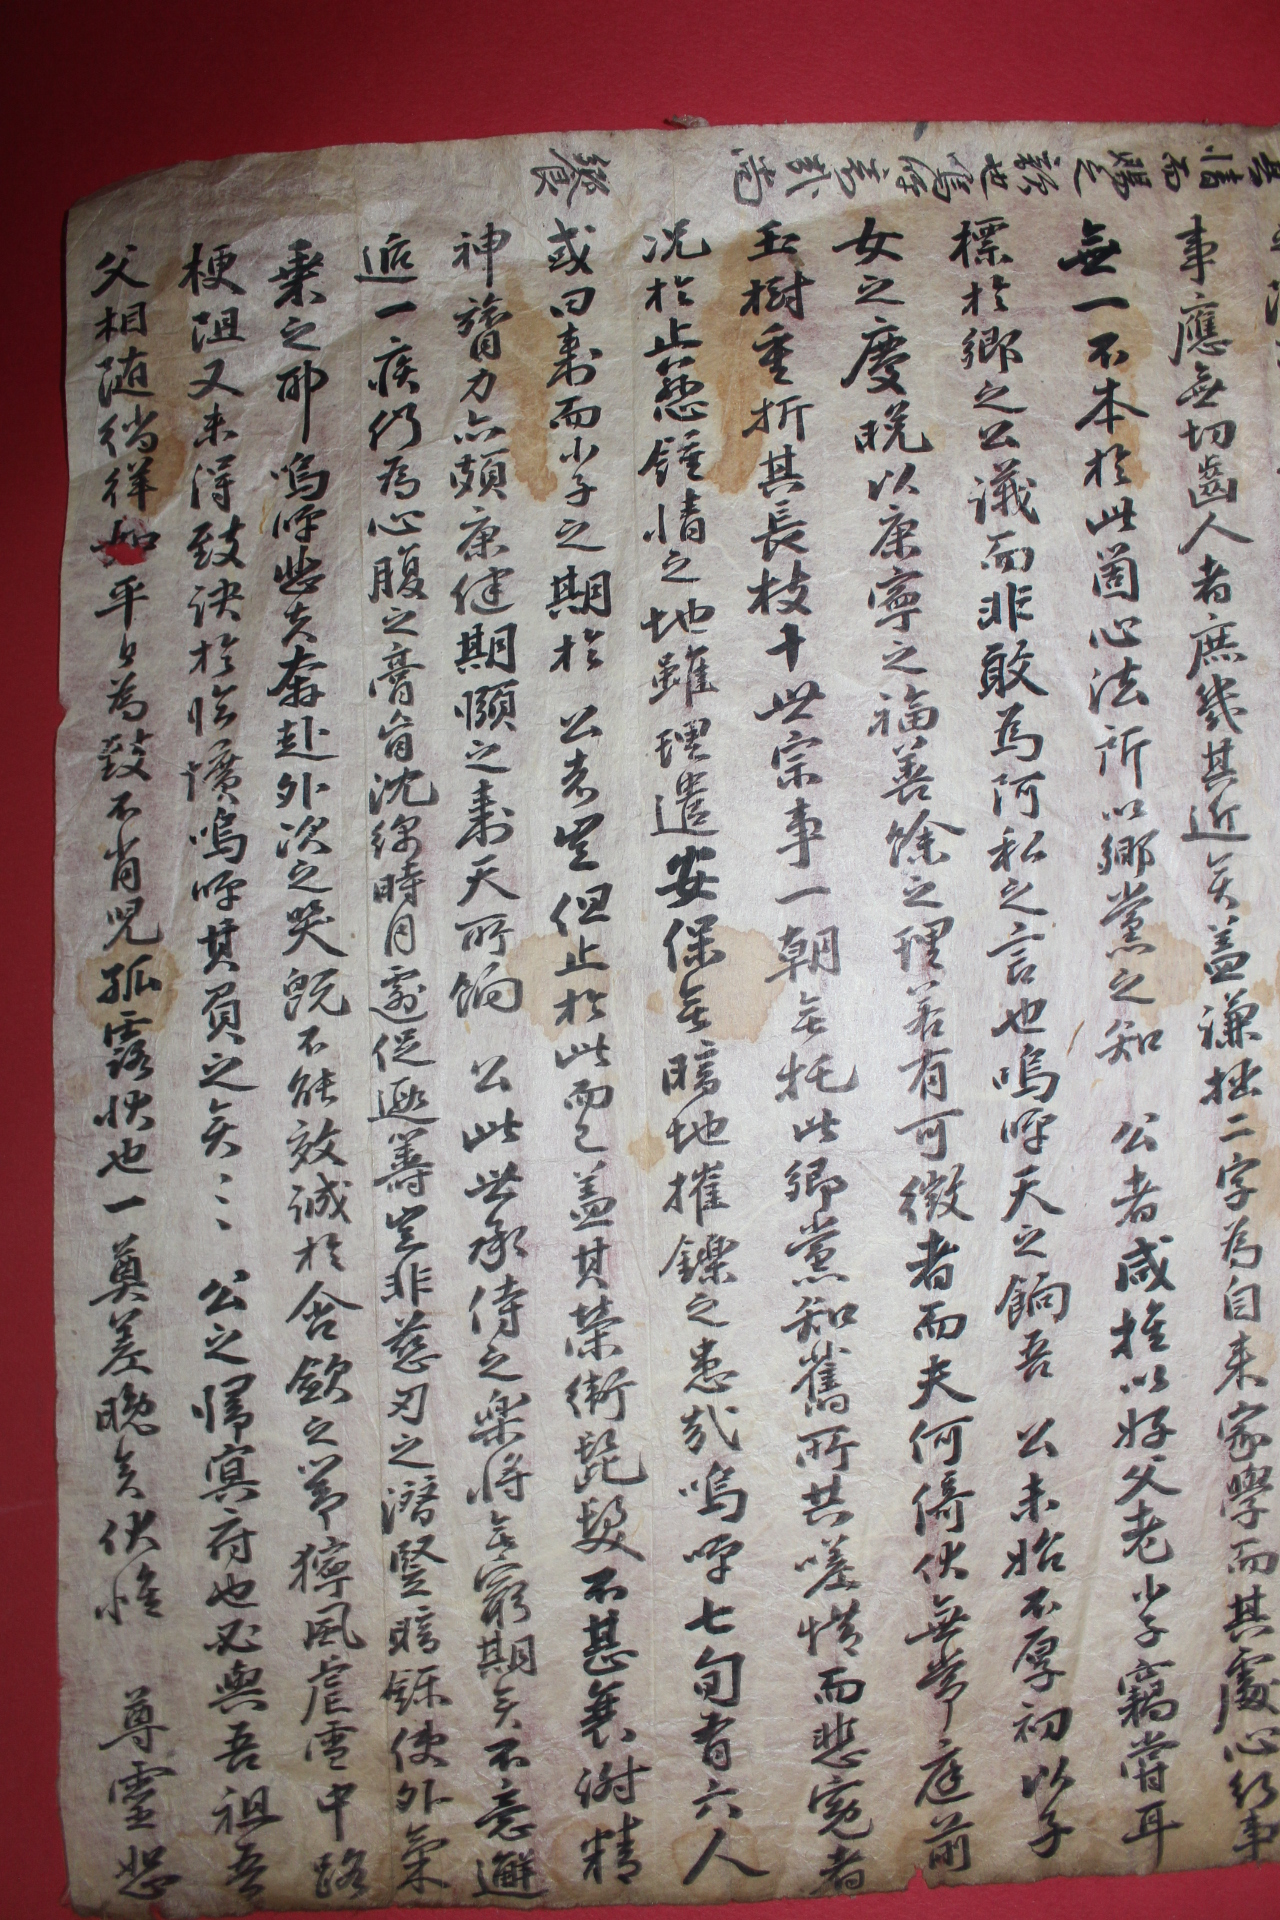 事應無切齒人者庶幾其近矣盖謙拙二字為自来家學而其處心行事
無一不本於此箇心法所以鄕黨之知 公者咸推以好父老小子竊嘗耳
標於鄕之公議而非敢為阿私之言也嗚呼天之餉吾 公未始不厚初以子
女之慶晚以康寧之福善餘之理若有可徵者而夫何倚伏無常庭前
玉樹重折其長枝十世宗事一朝無托此鄕黨知舊所共嗟惜而悲寃者
况於止慈鍾情之地雖理遣安保無暗地摧鑠之患哉嗚呼七旬有六人
或曰壽而小子之期於 公者豈但止於此而已盖其榮衛髭髮不甚衰謝精
神膂力亦頗康健期頤之壽天所餉 公此世承侍之樂將無窮期矣不意邂
逅一疾仍為心腹之膏肓沈綿時月遽促遐籌豈非慈刃之潛竪暗鑠使外氣
乘之耶 嗚呼悲夫奔赴外次之哭既不能效誠於含歛之節獰風虐雪中路
梗阻又未得致訣於臨壙嗚呼其負之矣〻〻 公之歸冥府也必與吾祖吾
父相随徜徉如平日為致不肖兒孤露狀也一奠差晚矣伏惟 尊靈恕
情而賜之 歆也嗚呼哀哉尚
饗